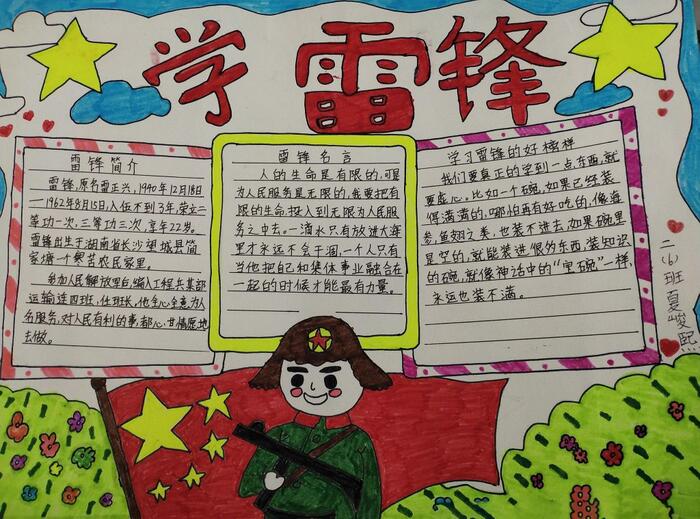 学雷锋
雷锋简介
雷锋,原名雷正兴,1940年12月18日
—1962年8月15日,入伍不到3年,荣立二
等功一次,三等功三次,享年22岁。
雷锋出生于湖南省长沙望城县简
家塘一个贫苦农民家里。
参加人民解放军后,编入工程兵某部
运输连四班,任班长,他全心全意为人
名服务,对人民有利的事,都心甘情愿地
去做。
雷锋名言
人的生命是有限的,可是
为人民服务是无限的,我要把有
限的生命,投入到无限为人民服
务之中去。一滴水只有放进大海
里才永远不会干涸,一个人只有
当他把自己和集体事业融合在
一起的时候才能最有力量。
学习雷锋的好榜样
我们要真正的学到一点东西,就
要虚心。比如一个碗,如果已经装
得满满的,哪怕再有好吃的,像海
参,鱼翅之类,也装不进去,如果碗里
是空的,就能装进很外东西,装知识
的碗,就像神话中的“宝碗”一样,
永远也装不满。
二(6)班夏峻熙